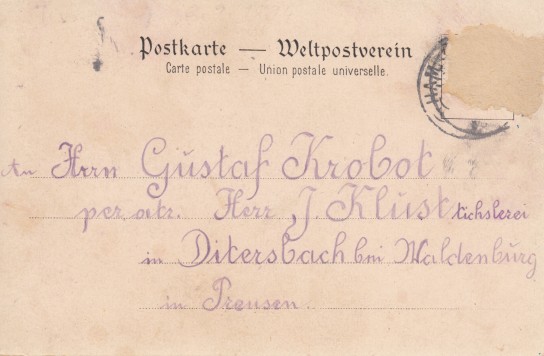 Postkarte — Weltpostverein
Carte postale — Union postale universelle.
HAM
An Herrn Gustaf Krobot
per. atr. Herr J. Klust tichslerei
in Ditersbach bei Waldenburg
in Preusen.